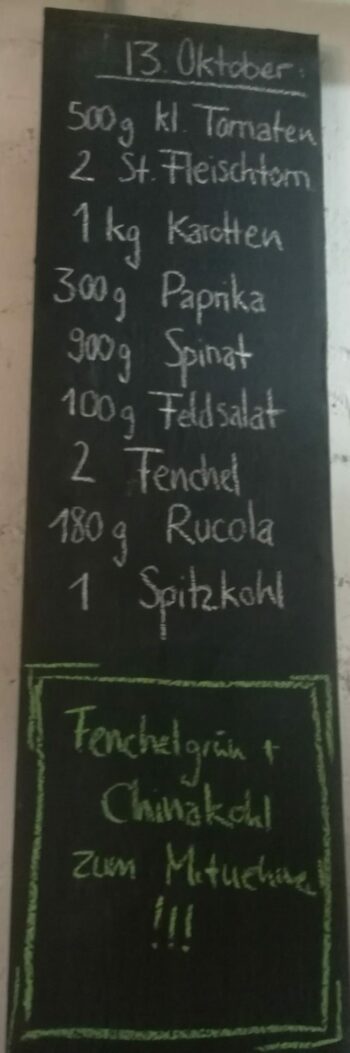 13. Oktober:
500g kl. Tomaten
2 St. Fleischtom
1 kg Karotten
300g Paprika
900g Spinat
100g Feldsalat
2 Fenchel
180 g Rucola
1 Spitzkohl
Fenchelgrün +
Chinakohl
zum Mitnehmen
!!!